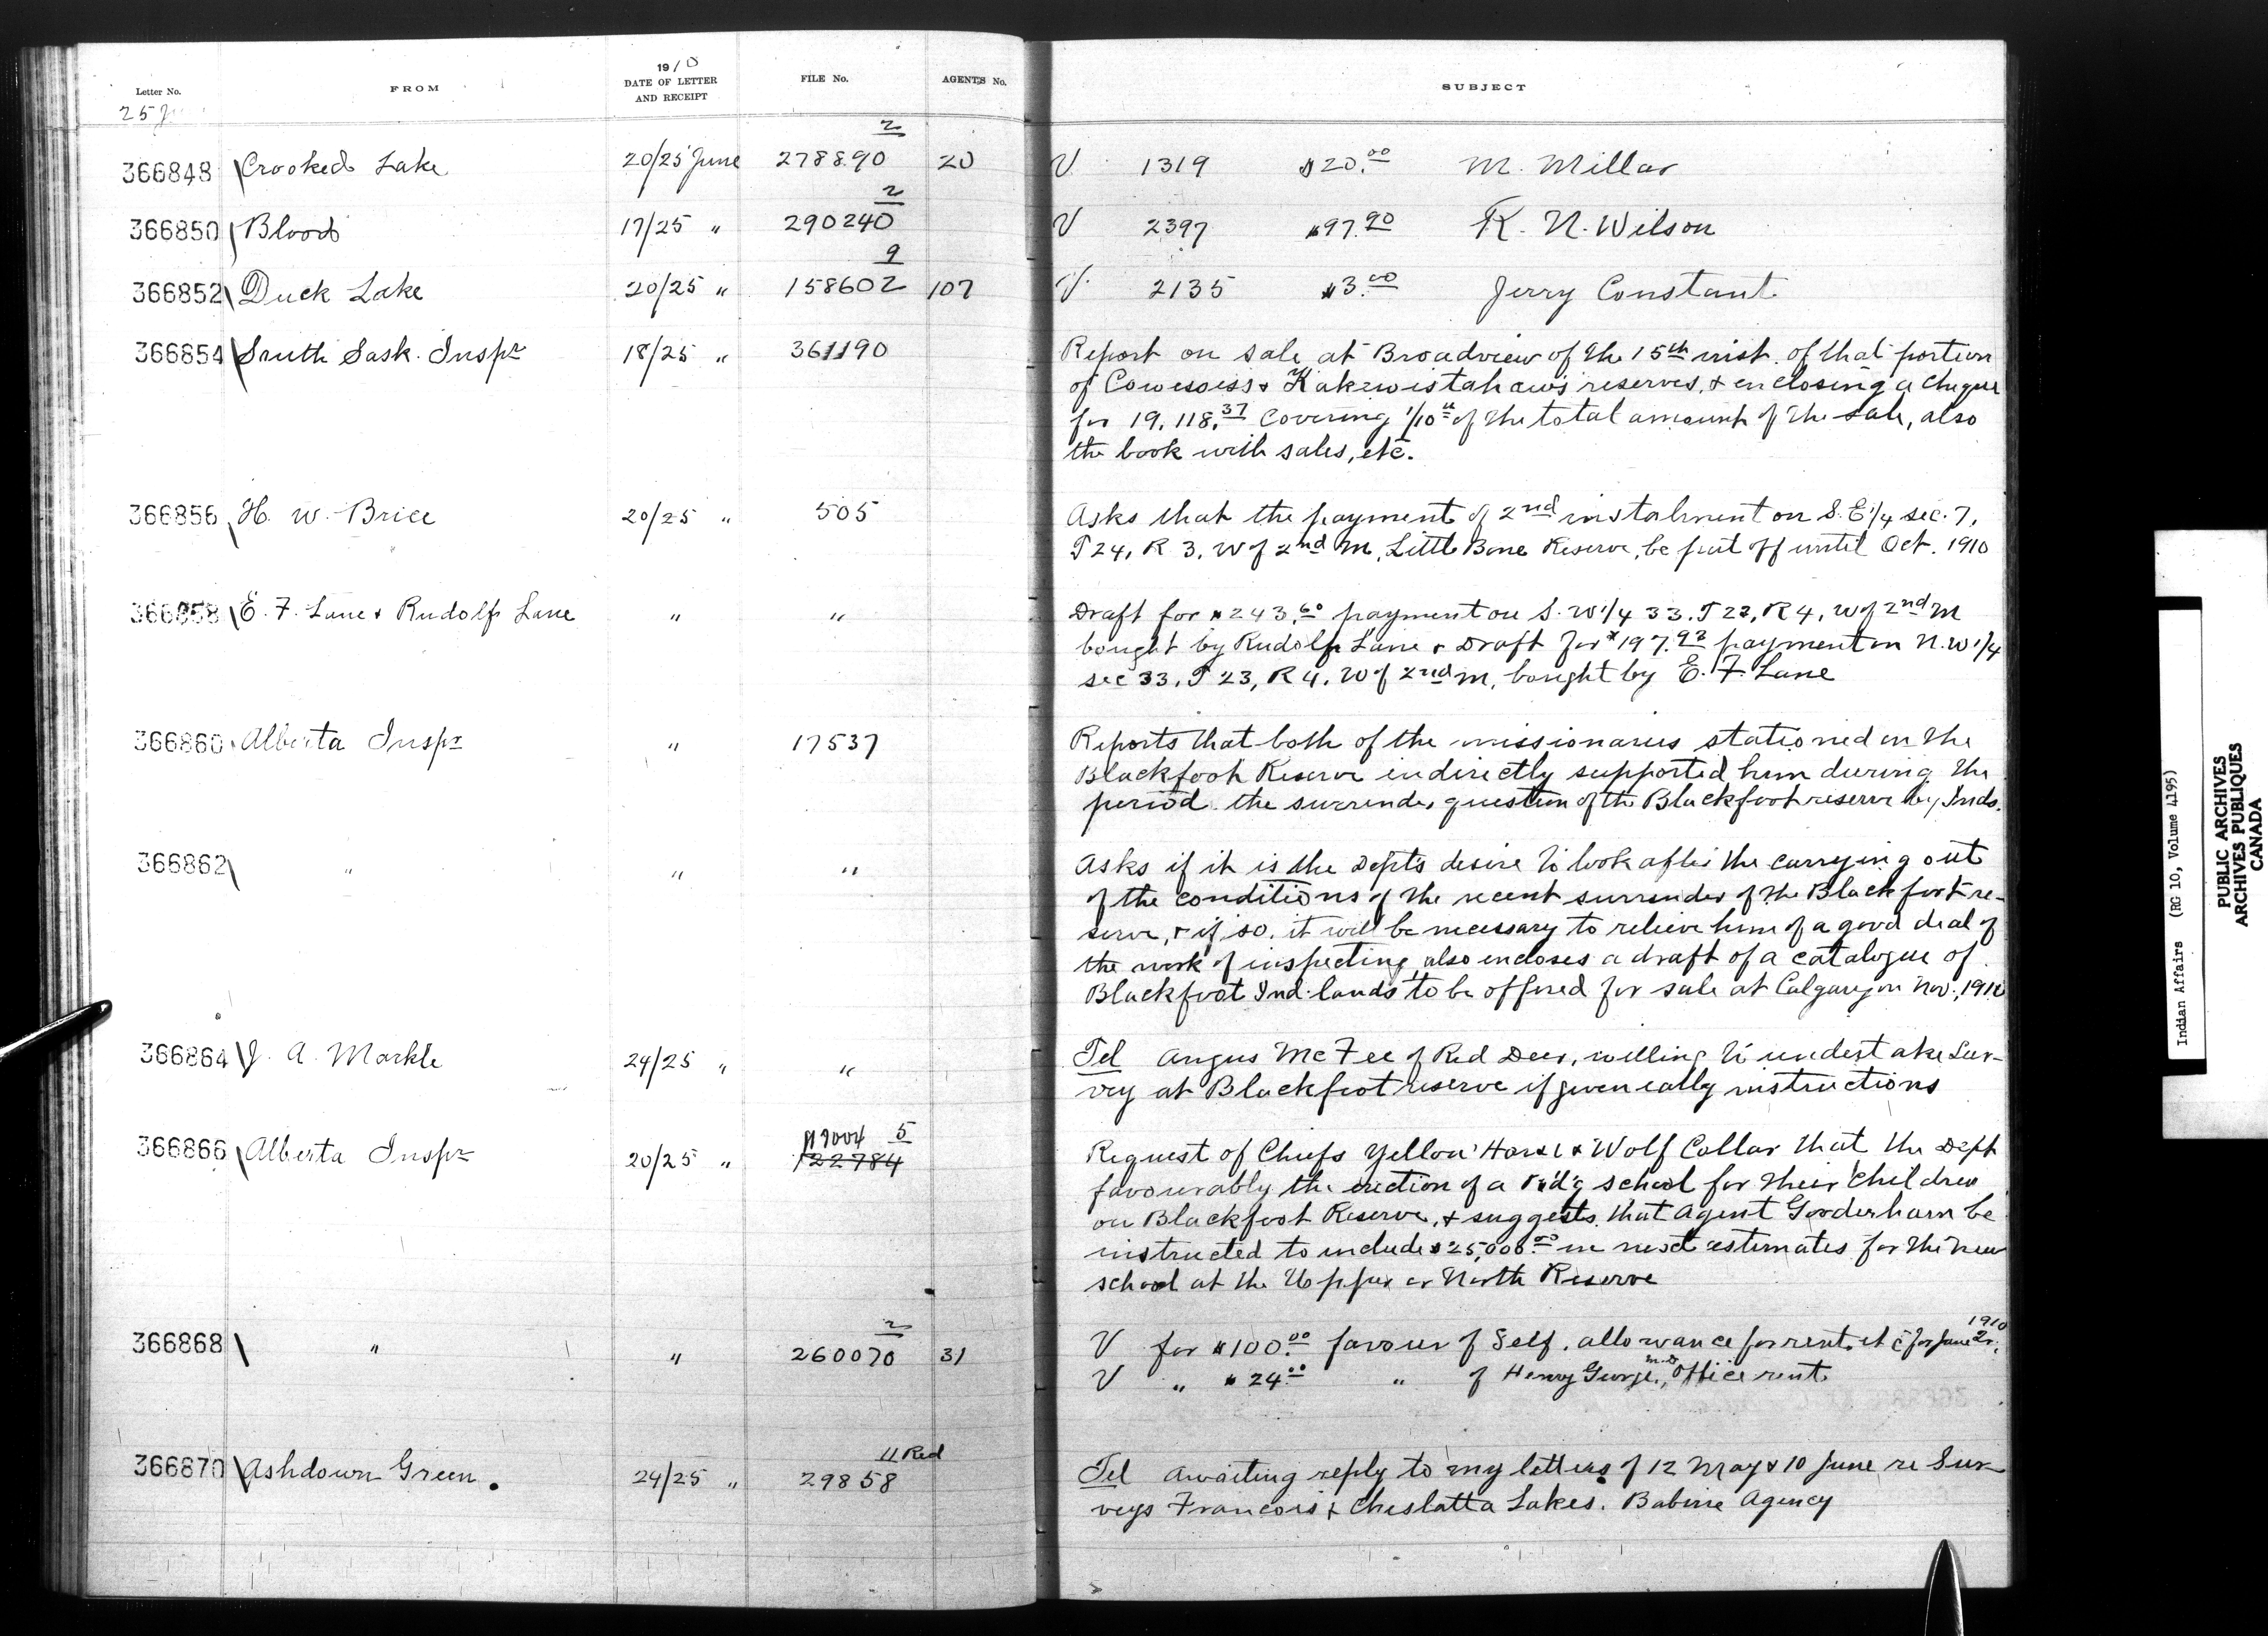 Letter No. FROM 1910 DATE OF LETTER AND RECEIPT FILE No. AGENTS No. SUBJECT
25
366848 Crooked Lake 20/25 June 278890 2 20 V 1319 $20.00 M. Millar
366850 Blood 17/25 " 290240 2 V 2397 $97.90 R. N. Wilson
366852 Duck Lake 20/25 " 158602 9 107 V. 2135 $3.00 Jerry Constant
366854 South Sask. Inspr 18/25 " 361190 Report on sale at Broadview of the 15th inst. of that portion
of Cowesess & Kakewistahaw's reserves, & enclosing a cheque
for 19,118.37 covering 1/10th of the total amount of the sale, also
the book with sales, etc.
366856 H. W. Brice 20/25 " 505 Asks that the payment of 2nd instalment on S.E 1/4 sec. 7,
T 24, R 3, W of 2nd M, Little Bone Reserve, be put off until Oct. 1910
366858 E. F. Lane & Rudolf Lane " " Draft for $243.60 payment on S. W 1/4 33. T 23, R 4, W of 2nd M
bought by Rudolf Lane & Draft for $197.92 payment on N. W 1/4
sec 33. T 23, R 4, W of 2nd M, bought by E. F. Lane
366860 Alberta Inspr " 17537 Reports that both of the missionaries stationed on the
Blackfoot Reserve indirectly supported him during the
period the surrender question of the Blackfoot reserve by Inds.
366862 " " " Asks if it is the Dept's desire to look after the carrying out
of the conditions of the recent surrender of the Blackfoot re-
serve, & if so, it will be necessary to relieve him of a good deal of
the work of inspecting, also encloses a draft of a catalogue of
Blackfoot Ind. lands to be offered for sale at Calgary in Nov., 1910
366864 J. A. Markle 24/25 " " Tel Angus McFee of Red Deer, willing to undertake Sur-
vey at Blackfoot reserve if given eally instructions
366866 Alberta Inspr 20/25 " 5 122784 Request of Chiefs Yellow Horse & Wolf Collar that the Dept
favourably the erection of a school for their children
on Blackfoot Reserve, & suggests that Agent Gooderham be
instructed to include $25,000.00 in next estimates for the new
school at the Upper or North Reserve
366868 " " 260070 2 31 V for $100.00 favour of Self. allowance for rent, etc for June 1910
V " $24.00 " of Henry George, office rent.
366870 Ashdown Green. 24/25 " 11 Red 29858 Tel Awaiting reply to my letters of 12 May & 10 June re Sur-
veys Francois & Cheslatta Lakes. Babine Agency
Indian Affairs (RG 10, Volume 4195)
PUBLIC ARCHIVES
ARCHIVES PUBLIQUES
CANADA